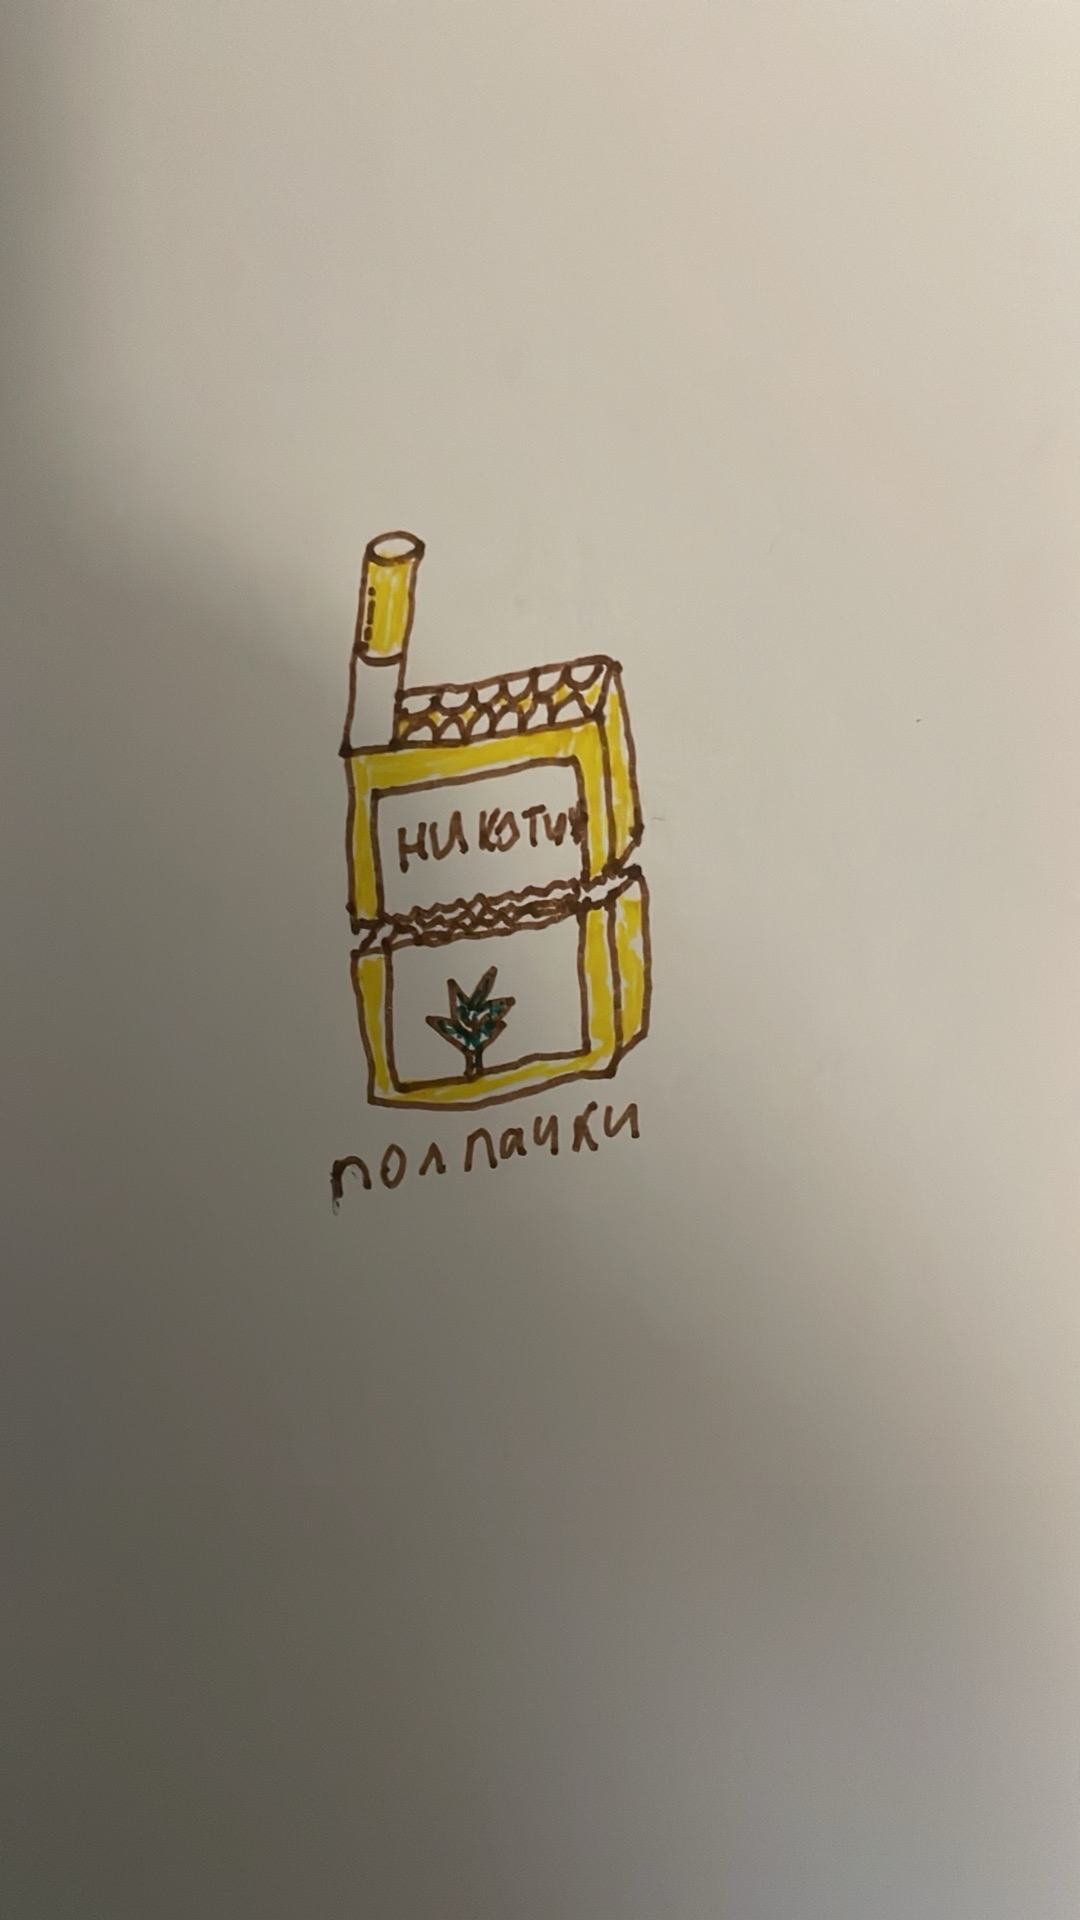 никотин
полпачки